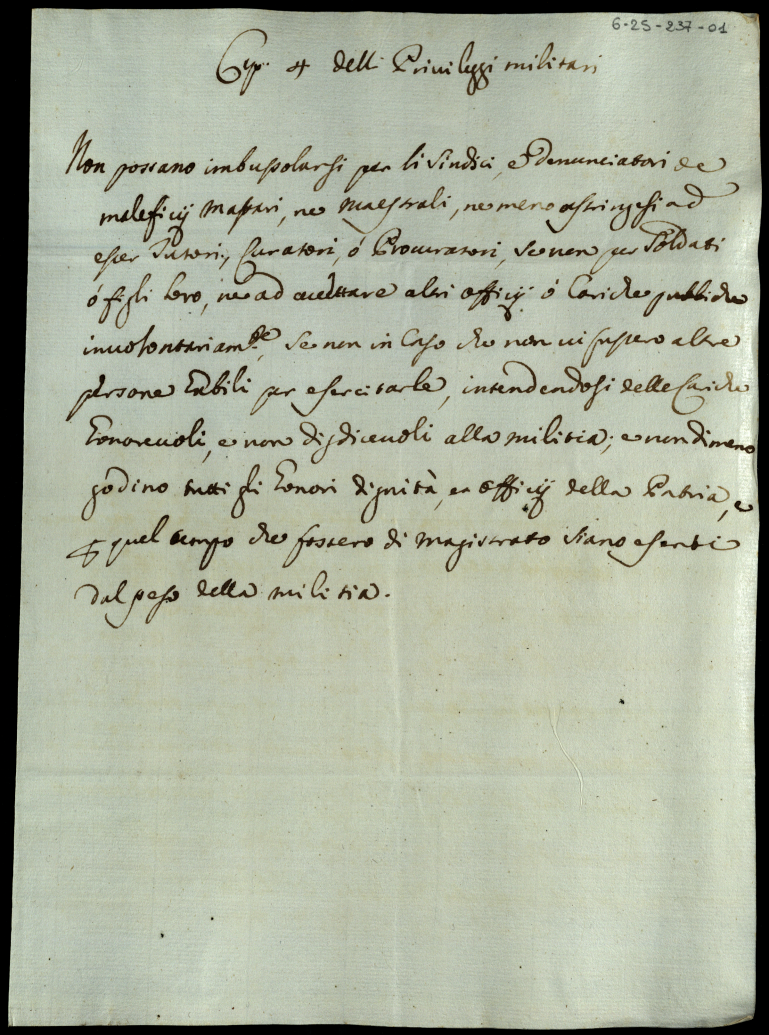 6-25-237-01
Cap. 4 delli Privileggi militari
Non possano imbussolarsi per li Sindici, e denunciatori de
maleficij Massari, ne Maestrali, ne meno astringesi ad
esser Tutori, Curatori, ó Procuratori, se non per Soldati
ó figli loro, ne ad accettare altri officij ó Cariche publiche
involontariam.te, se non in Caso che non vi fussero altre
persone habili per esercitarle, intendendosi delle Cariche
honorevoli, e non disdicevoli alla militia; e nondimeno
godino tutti gli honori dignità, et officij della Patria, e
quel tempo che fossero di Magistrato siano esenti
dal peso della militia.